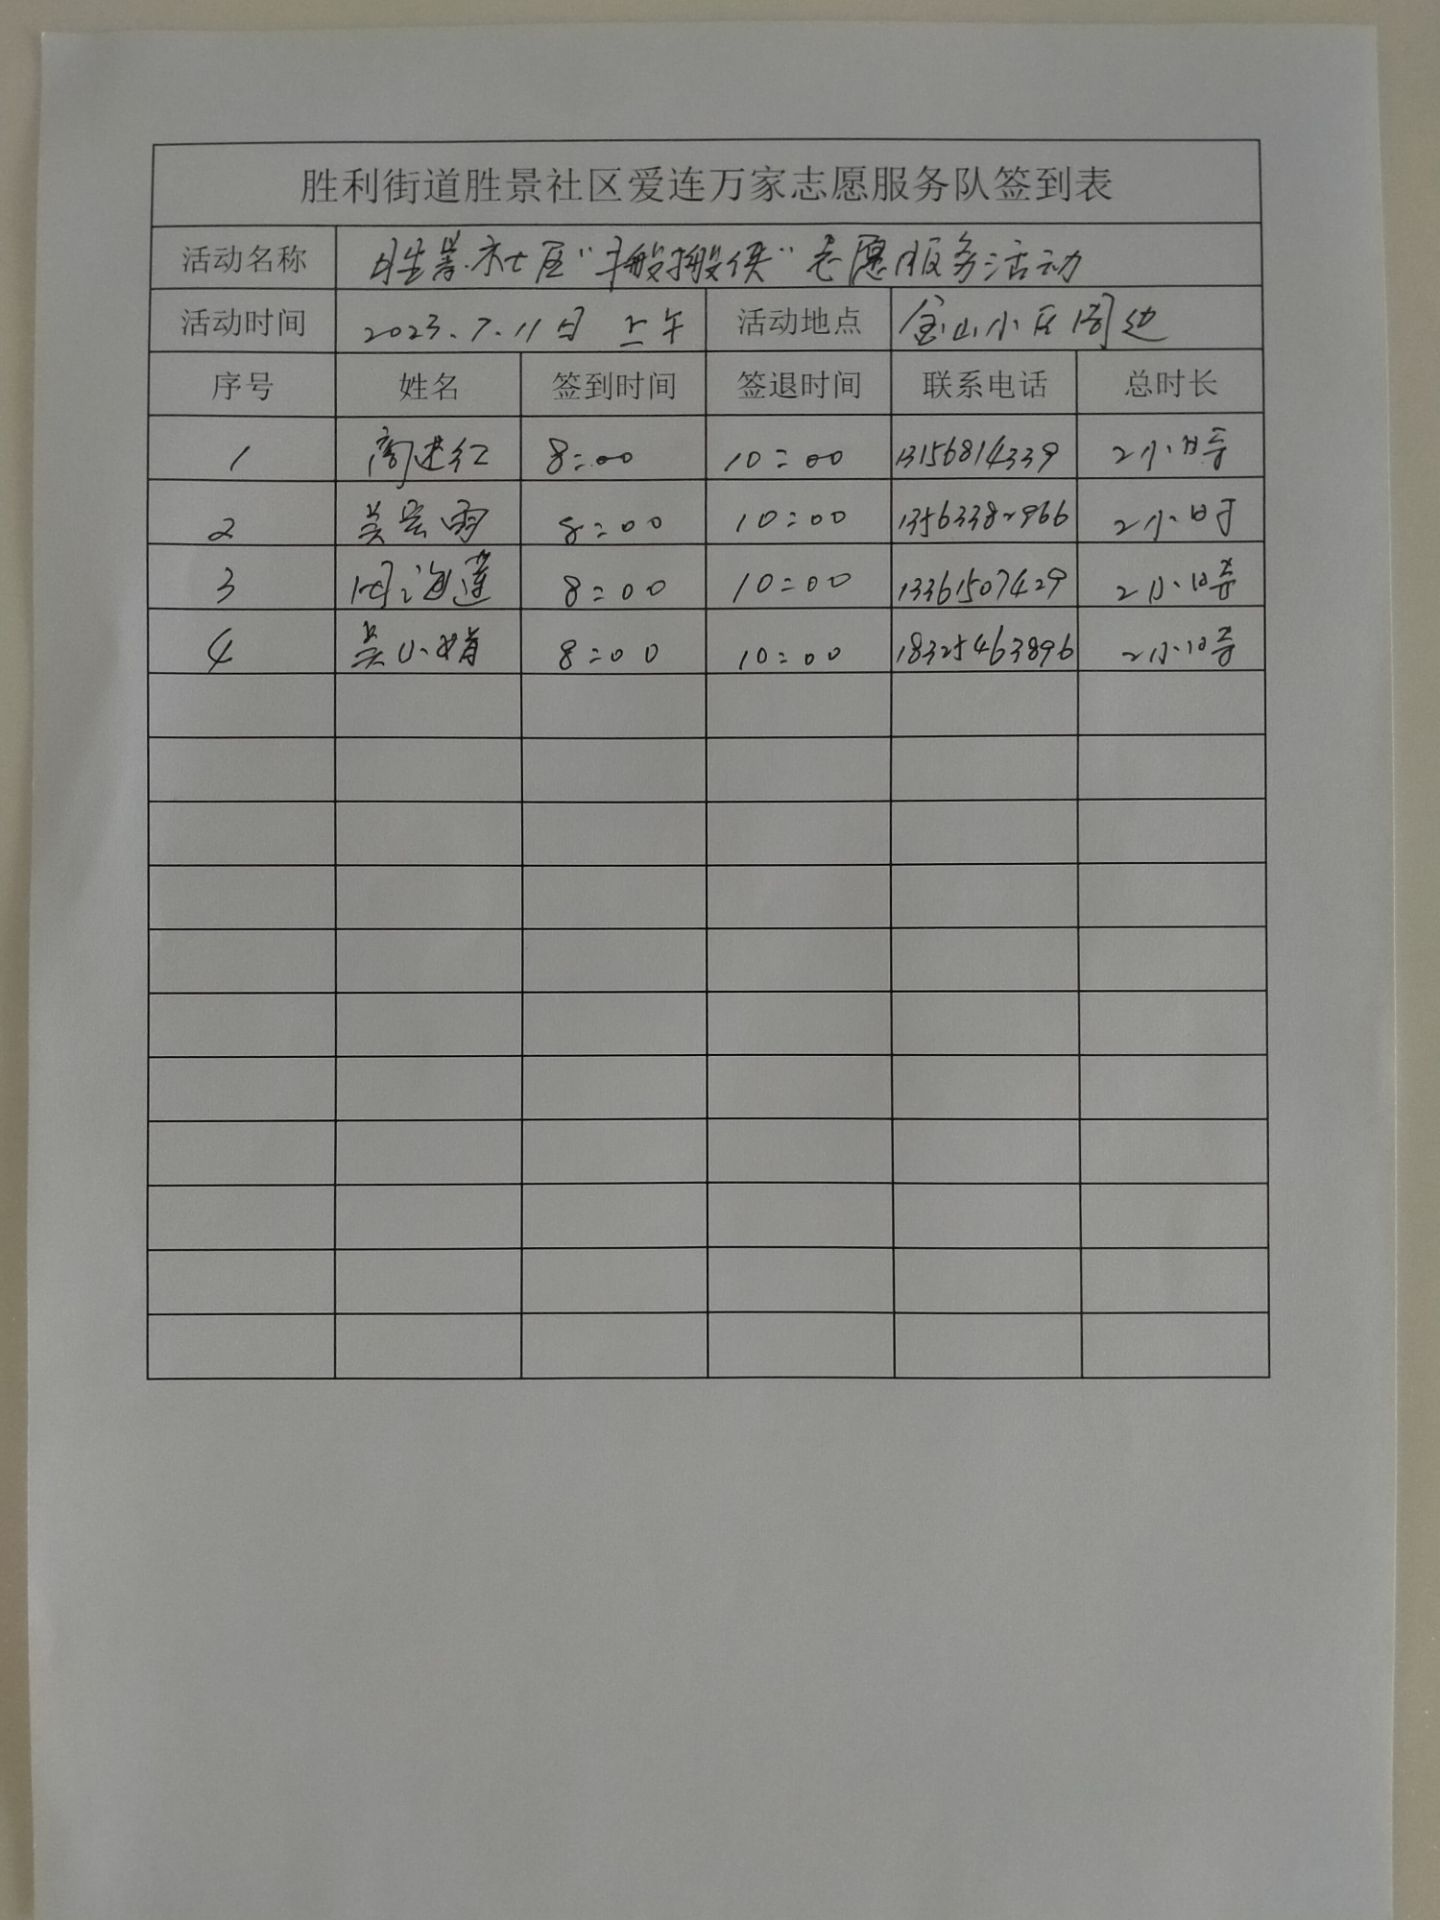 胜利街道胜景社区爱连万家志愿服务队签到表
活动名称 胜景社区“搬搬侠”志愿服务活动
活动时间 2023.7.11日 上午 活动地点 金山小区周边
序号 姓名 签到时间 签退时间 联系电话 总时长
1 8:00 10:00 13156814339 2小时
2 8:00 10:00 13563382966 2小时
3 周海莲 8:00 10:00 13361507429 2小时
4 吴小娟 8:00 10:00 18325463896 2小时